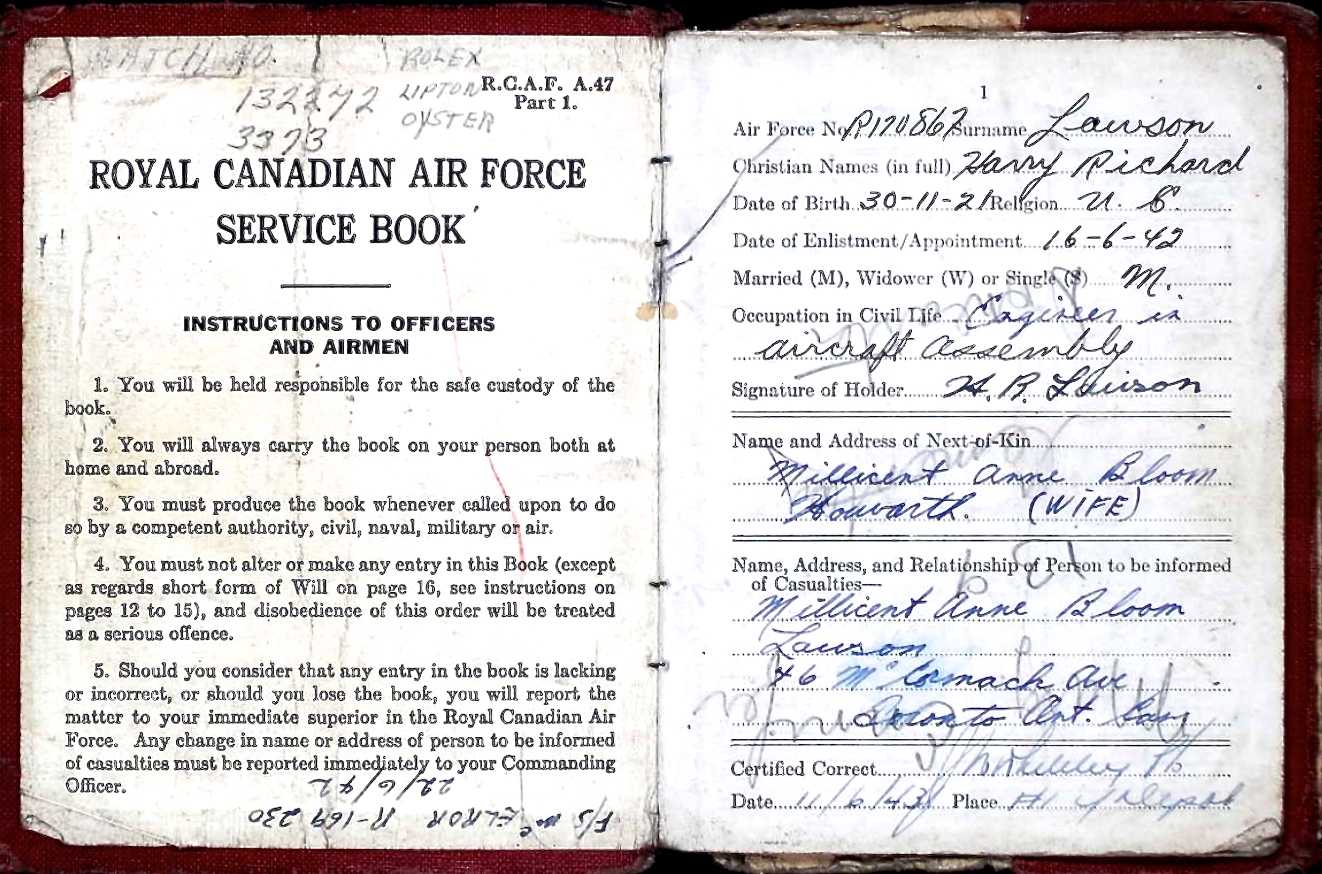 WATCH NO.
ROLEX
132272
LIPTON
3373
OYSTER
R.C.A.F. A.47
Part 1.
ROYAL CANADIAN AIR FORCE
SERVICE BOOK
INSTRUCTIONS TO OFFICERS
AND AIRMEN
1. You will be held responsible for the safe custody of the
book.
2. You will always carry the book on your person both at
home and abroad.
3. You must produce the book whenever called upon to do
so by a competent authority, civil, naval, military or air.
4. You must not alter or make any entry in this Book (except
as regards short form of Will on page 16, see instructions on
pages 12 to 15), and disobedience of this order will be treated
as a serious offence.
5. Should you consider that any entry in the book is lacking
or incorrect, or should you lose the book, you will report the
matter to your immediate superior in the Royal Canadian Air
Force. Any change in name or address of person to be informed
of casualties must be reported immediately to your Commanding
Officer.
22/6/42
F/S McELROR R-169230
1
Air Force No. R170867 Surname Lawson
Christian Names (in full) Harry Richard
Date of Birth 30-11-21 Religion U. C.
Date of Enlistment/Appointment 16-6-42
Married (M), Widower (W) or Single (S) M.
Occupation in Civil Life Engineer in
aircraft assembly
Signature of Holder H. R. Lawson
Name and Address of Next-of-Kin
Millicent Anne Bloom
Howarth. (WIFE)
Name, Address, and Relationship of Person to be informed
of Casualties—
Millicent Anne Bloom
Lawson
46 McCormack Ave
Toronto Ont. Can
Certified Correct
Date 11/6/43 Place